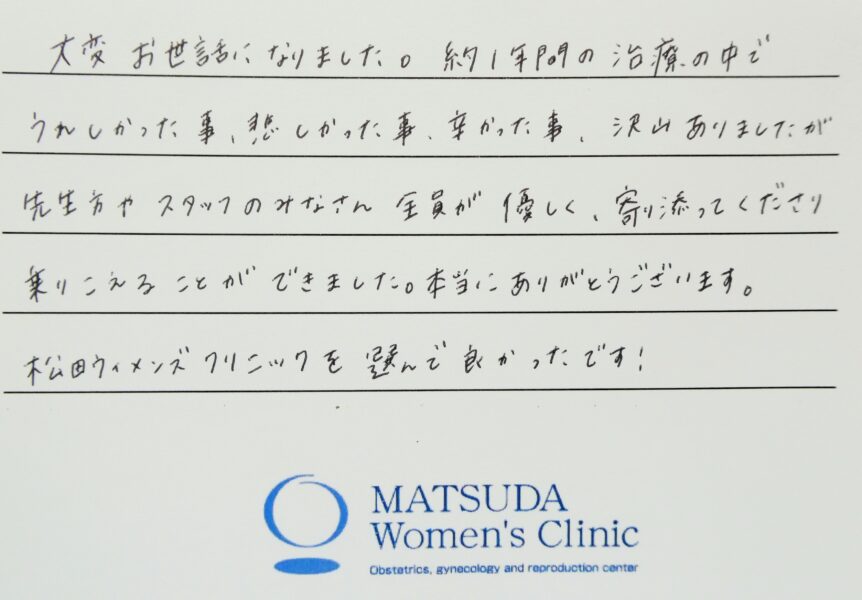 大変 お世話に なりました。約1年間の 治療の中で
うれしかった事、悲しかった事、辛かった事、沢山ありましたが
先生方や スタッフのみなさん 全員が 優しく、寄り添ってくださり
乗りこえる ことが できました。本当に ありがとうございます。
松田ウィメンズ クリニックを 選んで 良かったです!
MATSUDA
Women's Clinic
Obstetrics, gynecology and reproduction center